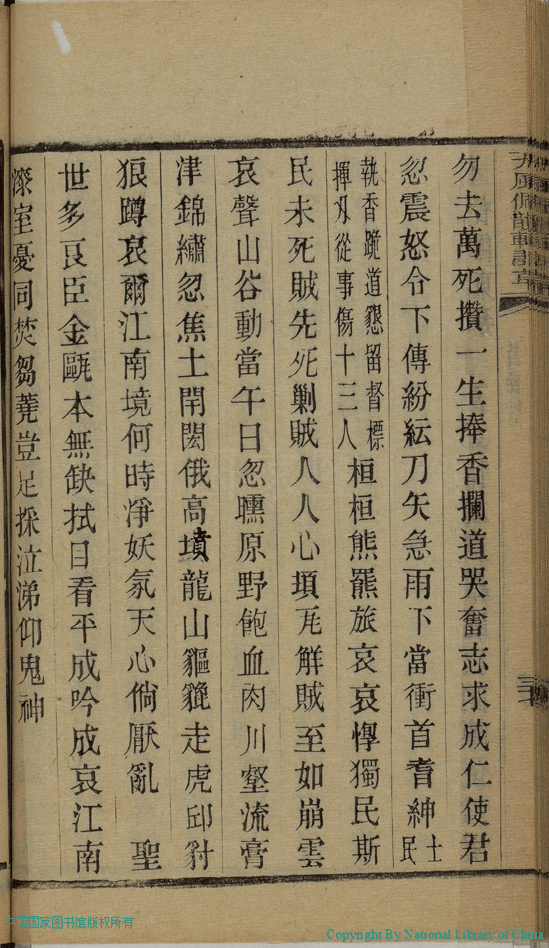 勿去萬死攢一生捧香攔道哭奮志求成仁使君
忽震怒令下傳紛紜刀矢急雨下當衝首耆紳士民
執香跪道懇留督標
揮刃從事傷十三人
桓桓熊羆旅哀哀惸獨民斯
民未死賊先死剿賊人人心頊瓦觧賊至如崩雲
哀聲山谷動當午日忽曛原野飽血肉川壑流膏
津錦繡忽焦土閈閎俄高墳龍山貙貔走虎邱豺
狼蹲哀爾江南境何時淨妖氛天心倘厭亂 聖
世多良臣金甌本無缺拭目看平成吟成哀江南
漆室憂同焚芻蕘豈足採泣涕仰鬼神
中国国家图书馆版权所有
Copyright By National Library of China